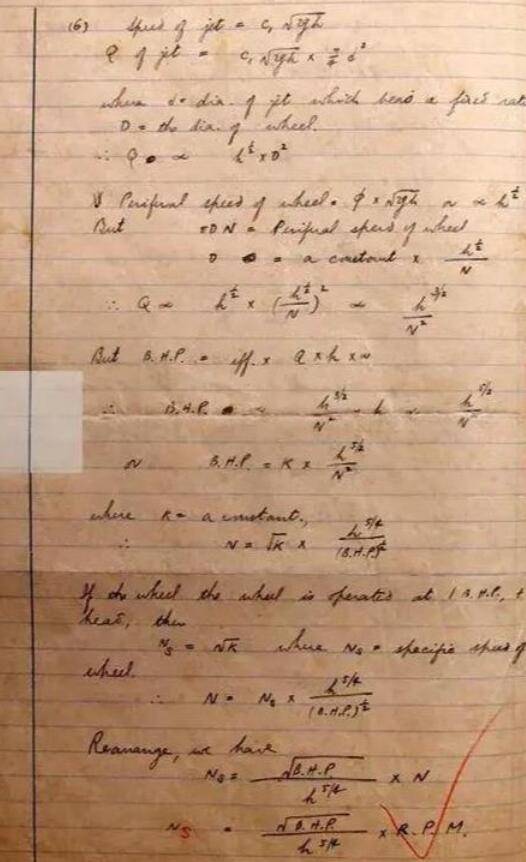 (6) Speed of jet = c, √2gh
Q of jet = c, √2gh × π/4 d²
where d = dia. of jet which bears a fixed rat
D = the dia. of wheel.
∴ Q ∝ h^½ × D²
Periferal speed of wheel = φ × √2gh or ∝ h^½
But πDN = Periferal speed of wheel
D = a constant × h^½/N
∴ Q ∝ h^½ × (h^½/N)² ∝ h^3/2/N²
But B.H.P. = eff. × Q × h × w
∴ B.H.P. ∝ h^3/2/N² × h ∝ h^5/2/N²
or B.H.P. = K × h^5/2/N²
where K = a constant.,
∴ N = √K × h^5/4/(B.H.P.)^½
If the wheel the wheel is operated at 1 B.H.P., +
head, then
N_S = √K where N_S = specific speed of
wheel.
∴ N = N_S × h^5/4/(B.H.P.)^½
Rearrange, we have
N_S = √B.H.P./h^5/4 × N
N_S = √B.H.P./h^5/4 × R.P.M.